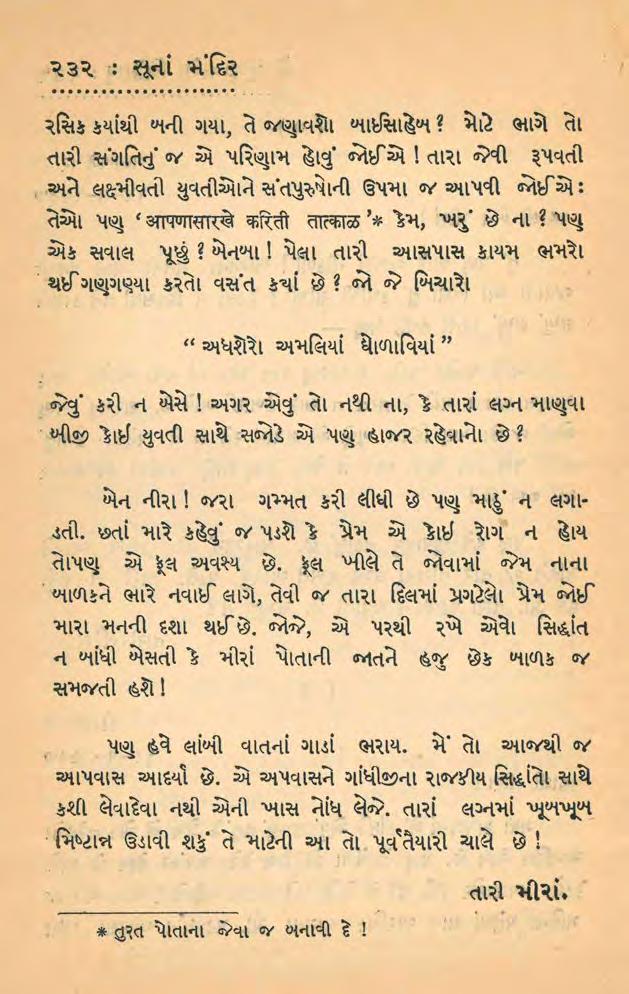 ૨૩૨ : સૂનાં મંદિર
રસિક ક્યાંથી બની ગયા, તે જણાવશો બાઈસાહેબ ? મોટે ભાગે તો
તારી સંગતિનું જ એ પરિણામ હોવું જોઈએ ! તારા જેવી રૂપવતી
અને લક્ષ્મીવતી યુવતીઓને સંતપુરુષોની ઉપમા જ આપવી જોઈએ :
તેઓ પણ ‘ आपणासारखे करिती तात्काळ ’* કેમ, ખરું છે ના ? પણ
એક સવાલ પૂછું ? બેનબા ! પેલા તારી આસપાસ કાયમ ભમરો
થઈ ગણગણ્યા કરતો વસંત ક્યાં છે ? જો જે બિચારો
“ અધશેરો અમલિયાં ઘોળાવિયાં ”
જેવું કરી ન બેસે ! અગર એવું તો નથી ના, કે તારાં લગ્ન માણવા
બીજી કોઈ યુવતી સાથે સજોડે એ પણ હાજર રહેવાનો છે ?
બેન નીરા ! જરા ગમ્મત કરી લીધી છે પણ માઠું ન લગા-
ડતી. છતાં મારે કહેવું જ પડશે કે પ્રેમ એ કોઈ રોગ ન હોય
તોપણ એ ફૂલ અવશ્ય છે. ફૂલ ખીલે તે જોવામાં જેમ નાના
બાળકને ભારે નવાઈ લાગે, તેવી જ તારા દિલમાં પ્રગટેલો પ્રેમ જોઈ
મારા મનની દશા થઈ છે. જોજે, એ પરથી રખે એવો સિદ્ધાંત
ન બાંધી બેસતી કે મીરાં પોતાની જાતને હજુ છેક બાળક જ
સમજતી હશે !
પણ હવે લાંબી વાતનાં ગાડાં ભરાય. મેં તો આજથી જ
અપવાસ આદર્યો છે. એ અપવાસને ગાંધીજીના રાજકીય સિદ્ધાંતો સાથે
કશી લેવાદેવા નથી એની ખાસ નોંધ લેજે. તારાં લગ્નમાં ખૂબખૂબ
મિષ્ટાન્ન ઉડાવી શકું તે માટેની આ તો પૂર્વતૈયારી ચાલે છે !
તારી મીરાં.
* તુરત પોતાના જેવા જ બનાવી દે !